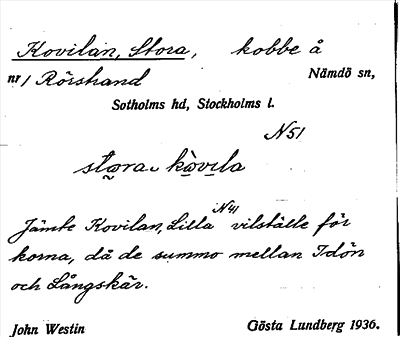 Kovilan, Stora, kobbe å
nr 1 Rörstrand Nämdö sn,
Sotholms hd, Stockholms l.
N51
stora kòvila
Jämte Kovilan, Lilla N41 vilställe för
korna, då de summo mellan Idön
och Långskär.
John Westin Gösta Lundberg 1936.